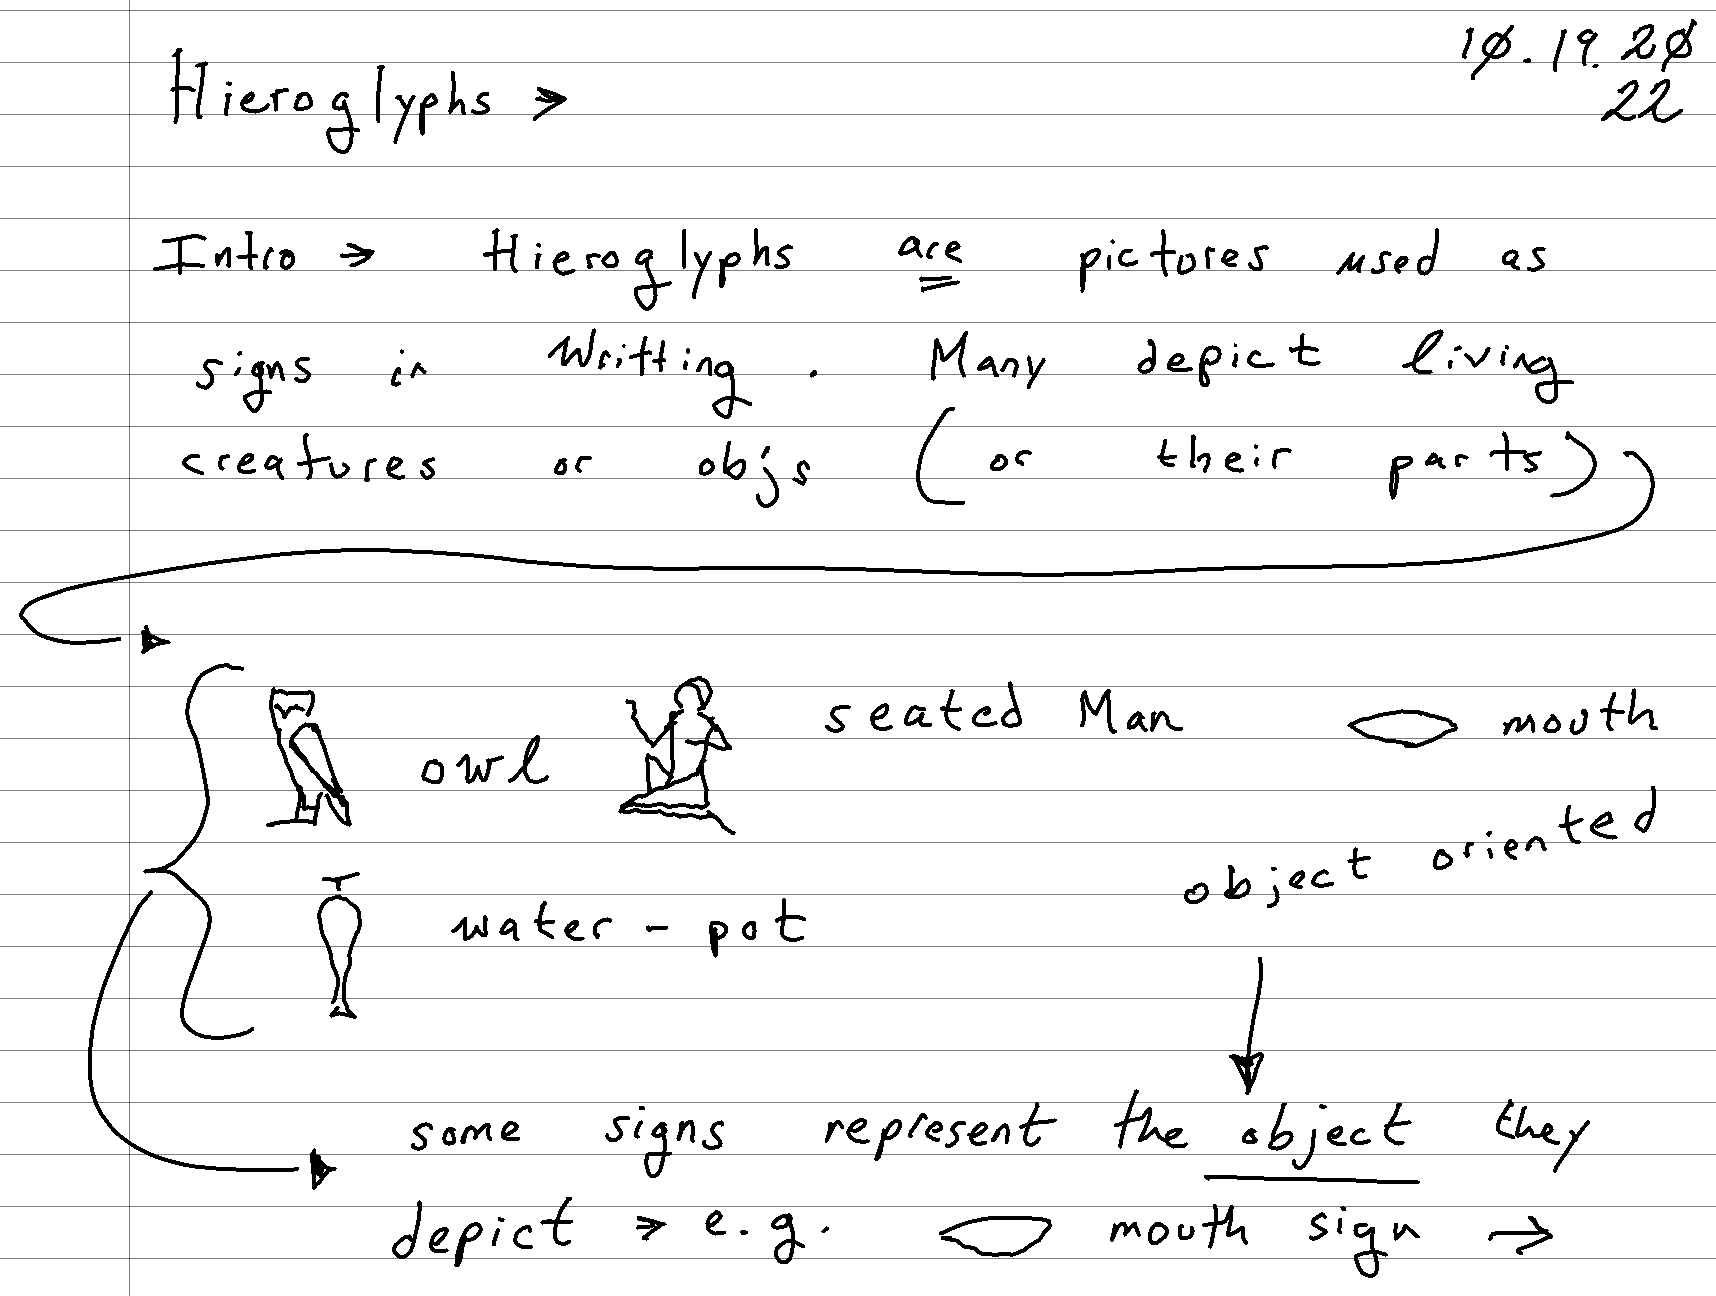 10.19.20
22
Hieroglyphs →
Intro → Hieroglyphs are pictures used as
signs in Writting. Many depict living
creatures or objs (or their parts)
owl seated Man mouth
object oriented
water-pot
some signs represent the object they
depict → e.g. mouth sign →